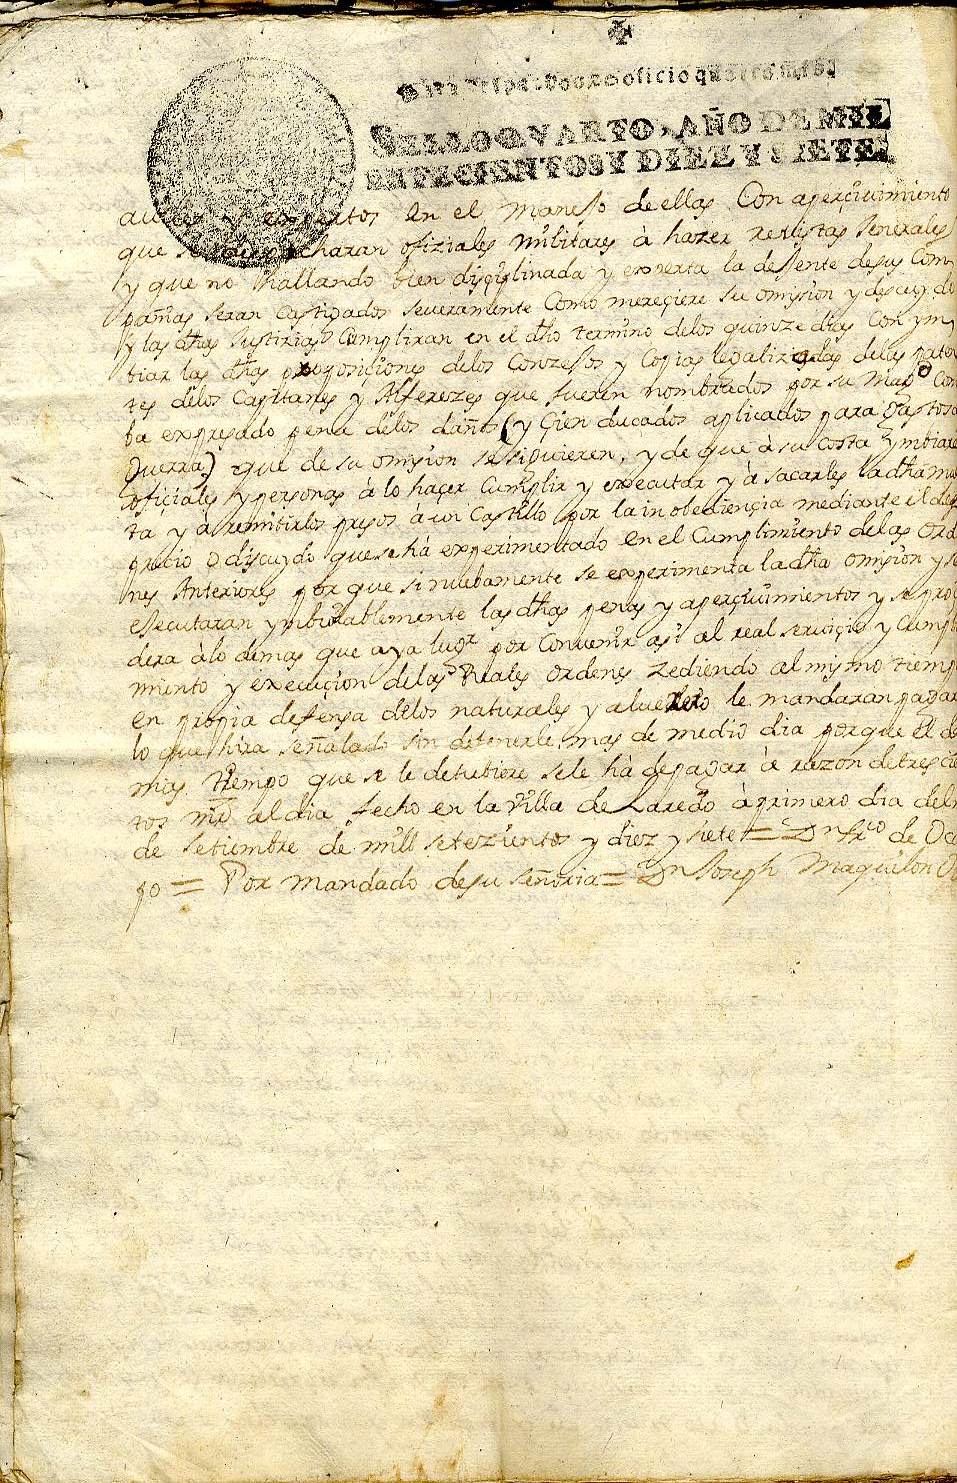 de oficio quatro mrs.
SELLO QVARTO, AÑO DE MIL
SETECIENTOS Y DIEZ Y SIETE.
y expertos en el manejo de ellas Con aperçiuimiento
que se despacharan ofiziales militares à hazer reuistas Jenerales
y que no hallando bien disçiplinada y experta la de Jente de sus Com
pañias seran Castigados seueramente Como mereçiere su omision y descuydo
y las dhas Justizias Cumpliran en el dho termino de los quinze dias Con ym
biar las dhas proposiçiones de los Conzejos y Copias legalizadas de las paten
tes de los Capitanes y Alferezes que fueren nombrados por su Magd Con
ba expresado pena de los daños (y Çien ducados aplicados para Gastos de
Guerra) que de su omision se siguieren, y de que à su Costa ymbiarè
ofiçiales y personas à lo haçer Cumplir y executar y à sacarles la dha mul
ta y à remitirlos presos à un Castillo por la inobediençia mediante el des
preçio o discuydo que se hà experimentado en el Cumplimiento de las Orde
nes Anteriores porque si nuebamente se experimenta la dha omision y se
esecutaran ymbiolablemente las dhas penas y aperçiuimientos y se proçe
dera à lo demas que aya lugr por Convenir asi al real seruiçio y Cumpli
miento y execuçion de las Reales ordenes zediendo al mismo tiempo
en propia defensa de los naturales y al le mandaran pagar
lo que hira señalado sin detenerle mas de medio dia porque el de
mas tiempo que se le detubiere se le hà de pagar à razon de tresçien
tos mrs al dia fecho en la Villa de Laredo à primero dia del mes
de Setiembre de mill setezientos y diez y siete = Dn Frco de Oca
po = Por mandado de su señoria = Dn Joseph Maquilon